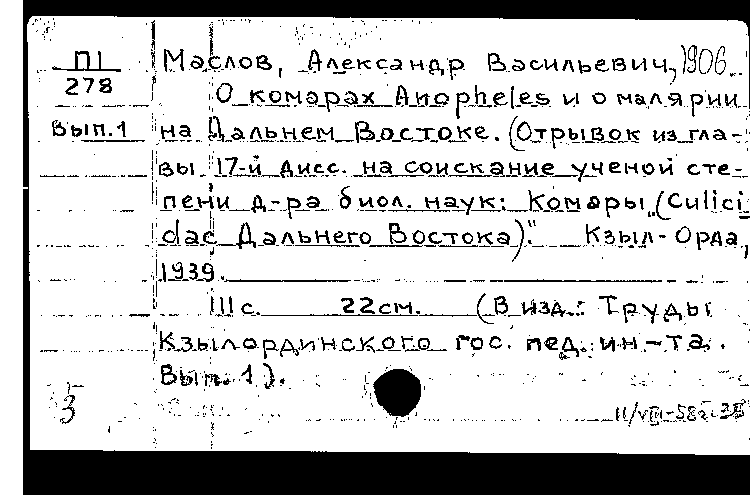 П1 Маслов, Александр Васильевич, 1906.
278 О комарах Anopheles и о малярии
Вып.1 на Дальнем Востоке. (Отрывок из гла-
вы 17-й дисс. на соискание ученой сте-
пени д-ра биол. наук: Комары „(Culici
dae Дальнего Востока)." Кзыл-Орда,
1939.
111с. 22см. (В изд.: Труды
Кзылординского гос. пед. ин-та.
Вып. 1).
3
11/VIII-58г.